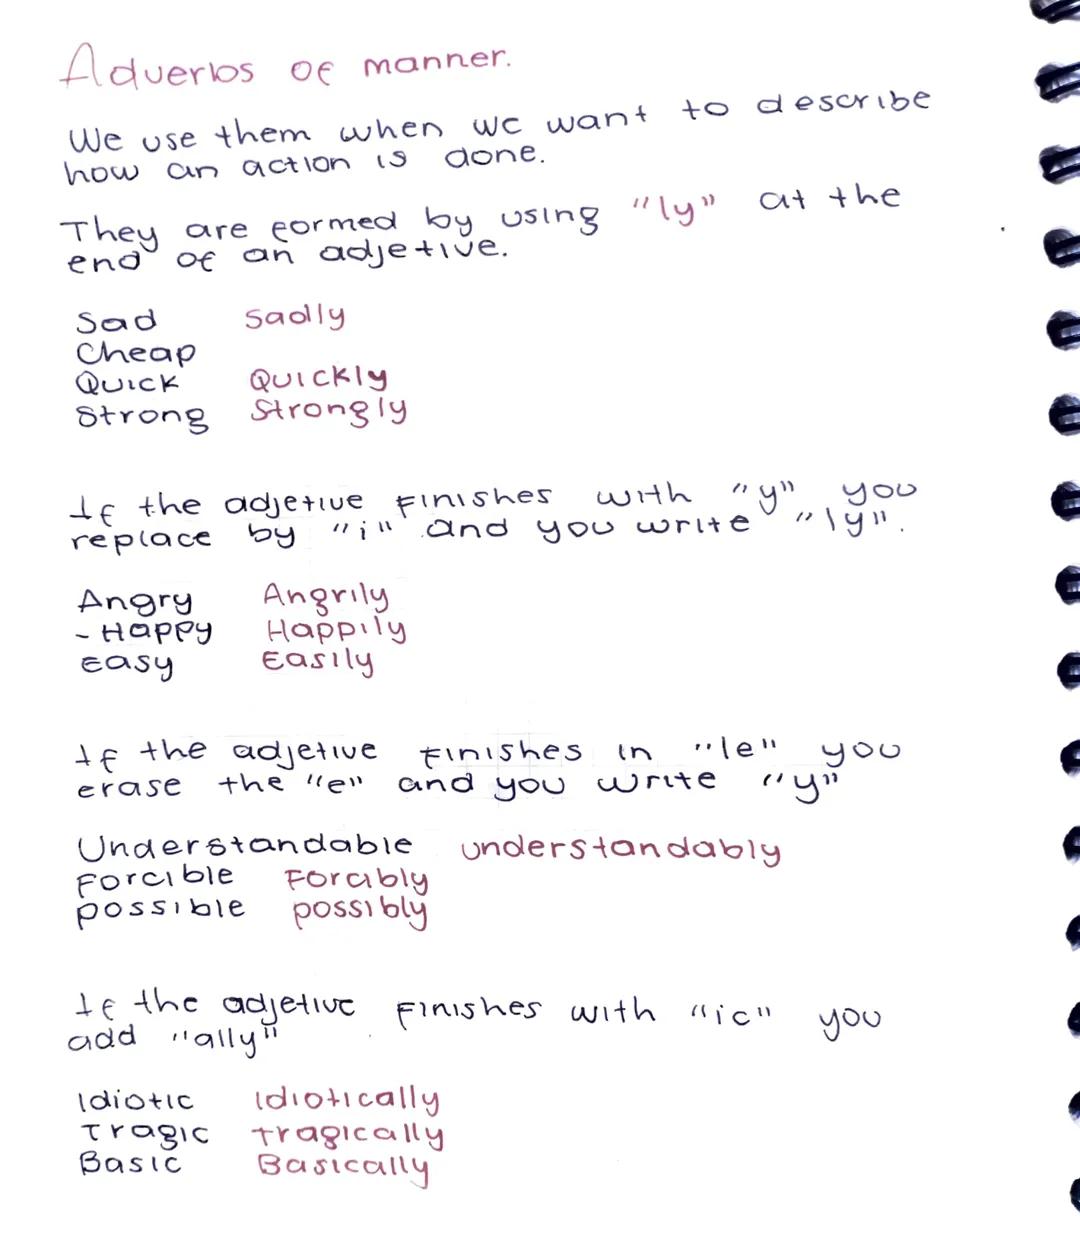 Adverbs of manner.
We use them when we want to describe
how an action is done.
They are formed by using "ly" at the
end of an adjetive.
Sad Sadly
Cheap
Quick Quickly
Strong Strongly
If the adjetive finishes with "y" you
replace by "i" and you write "ly".
Angry Angrily
- Happy Happily
Easy Easily
If the adjetive finishes in "le" you
erase the "e" and you write "y"
Understandable understandably
Forcible Forcibly
possible possibly
If the adjetive finishes with "ic" you
add "ally"
Idiotic Idiotically
Tragic tragically
Basic Basically